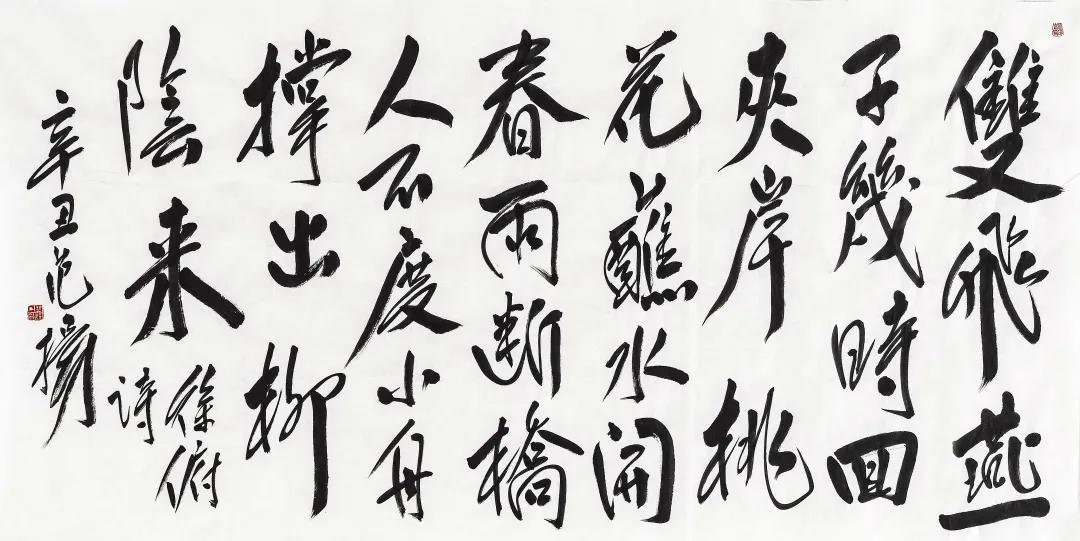 雙飛燕
子幾時回
夾岸桃
花蘸水開
春雨断橋
人不度小舟
撑出柳
陰来
徐俯
詩
辛丑范揚